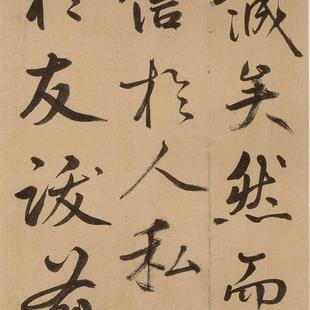 誠矣然而
信於人私
於友跋前